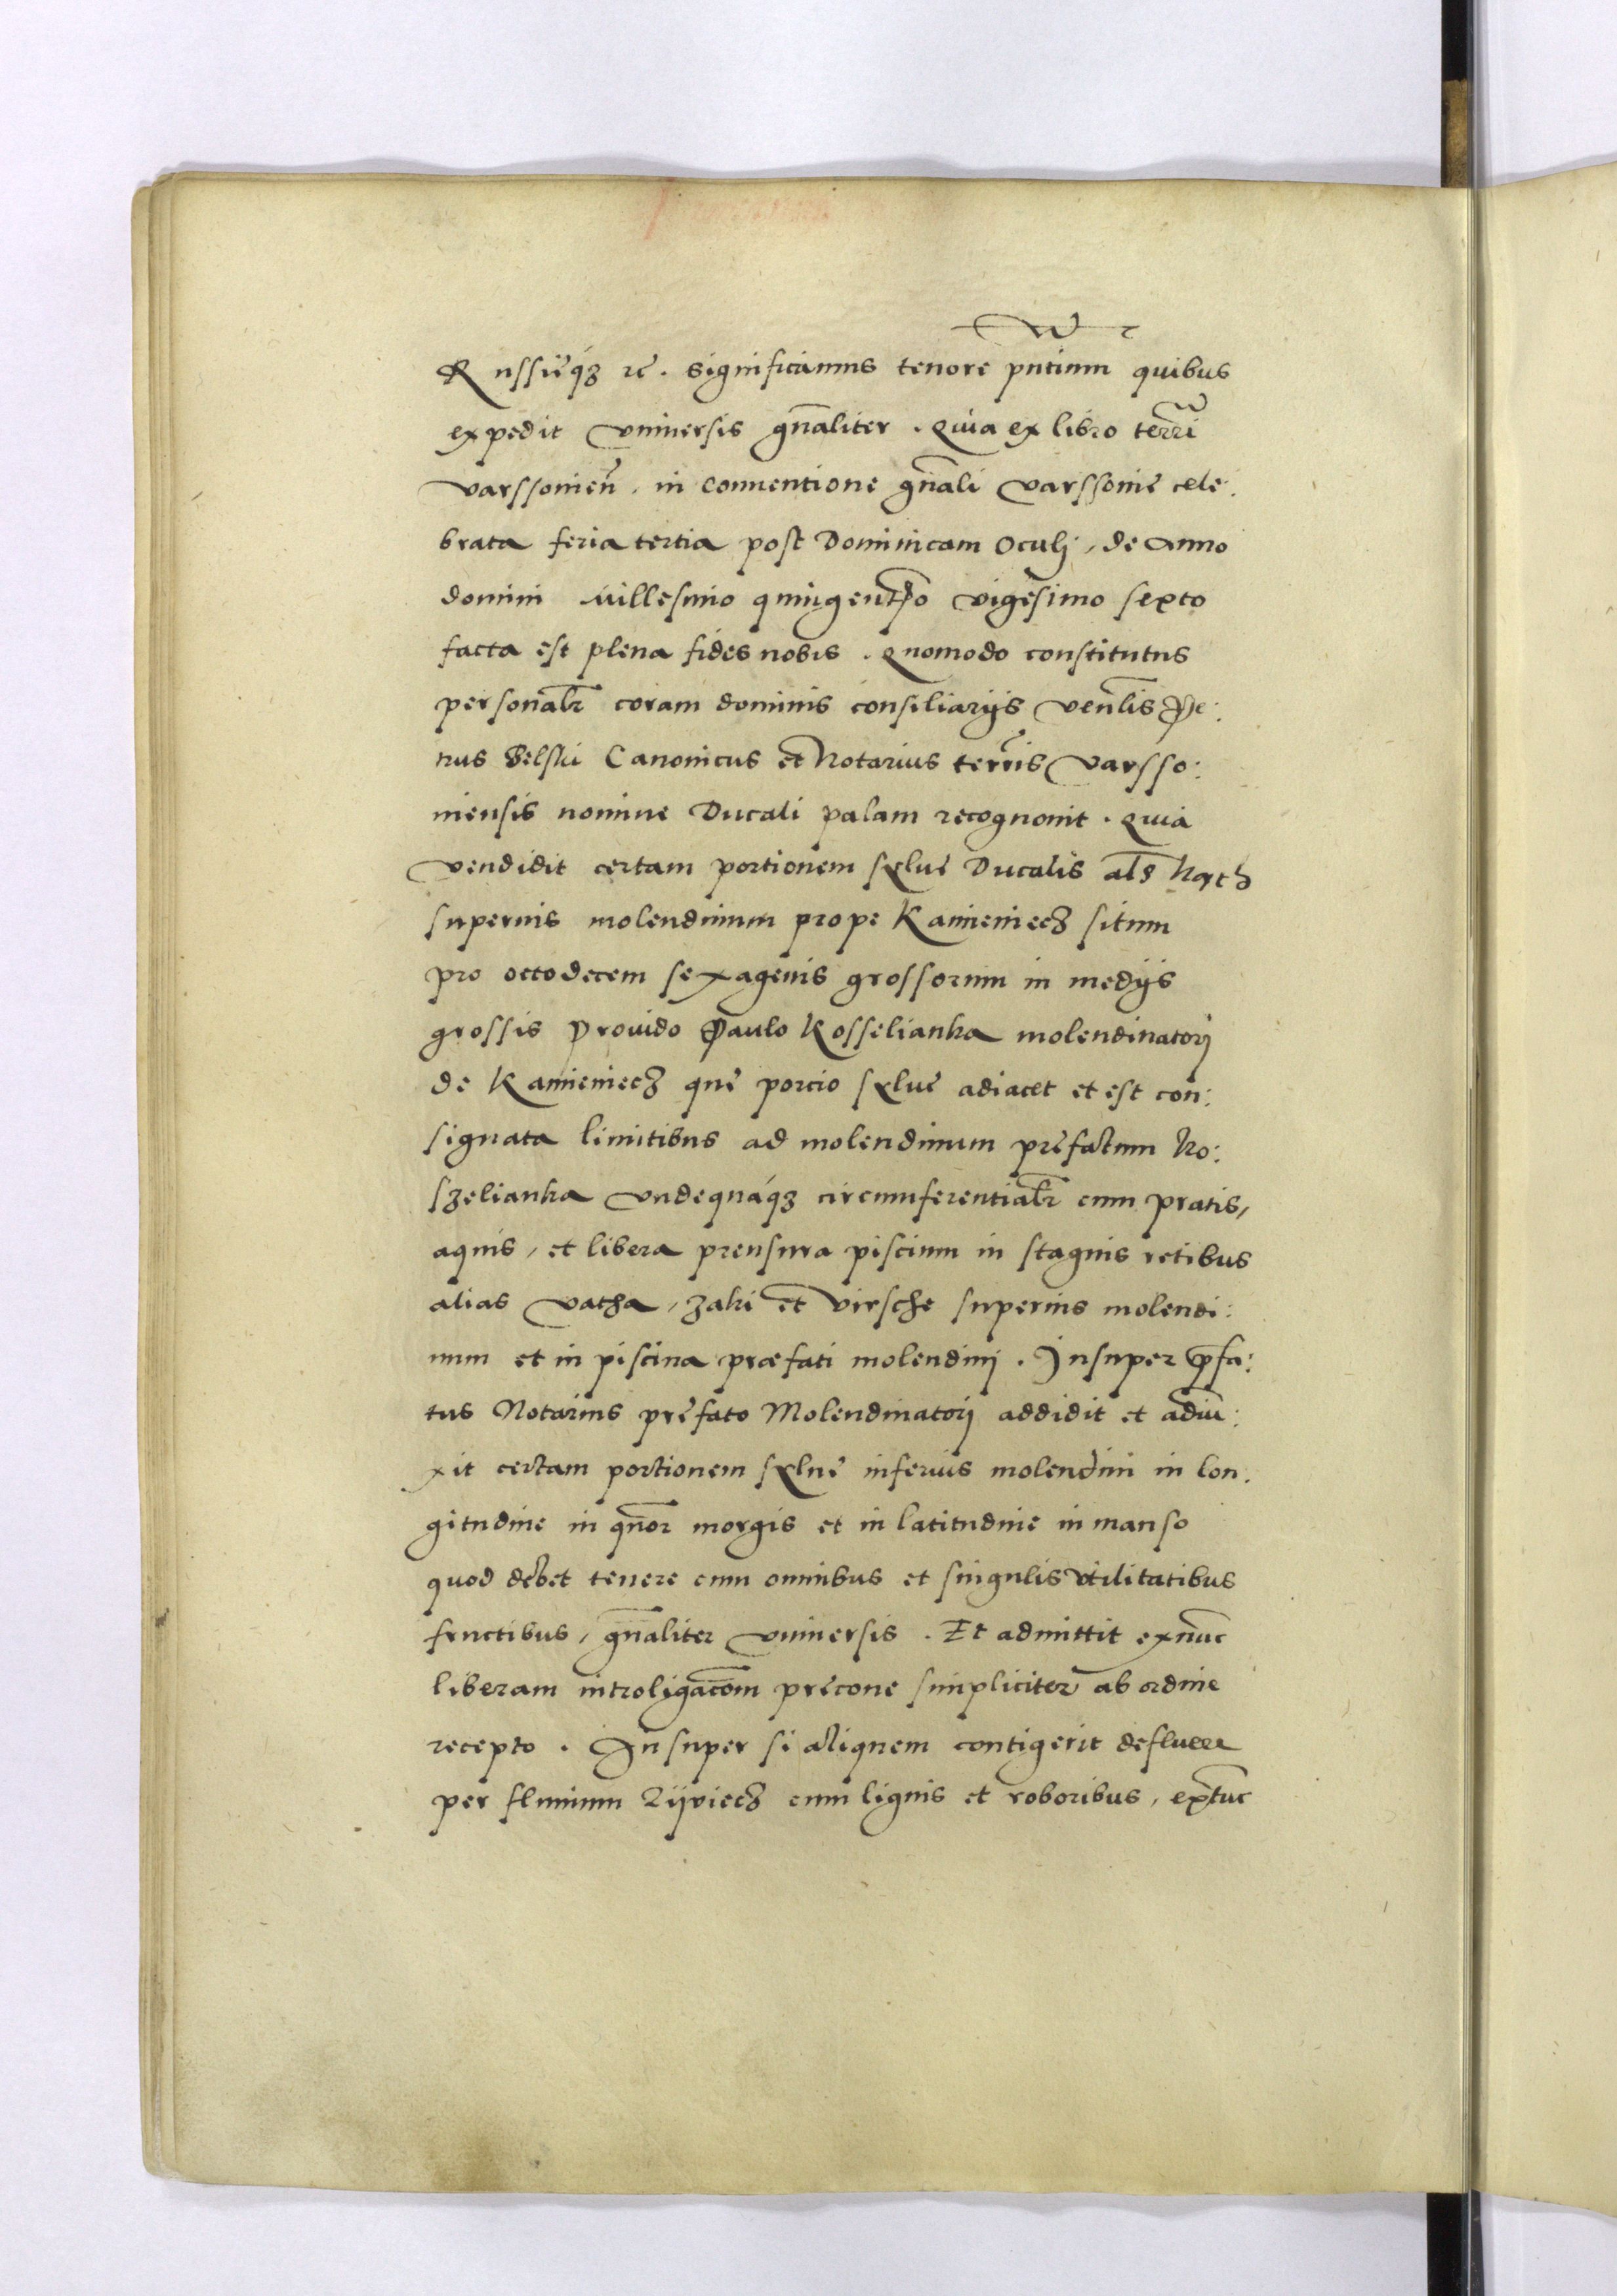 Russięqꝫ ꝛc. significamus tenore pn̄tium quibus
expedit vniuersis gn̄aliter. Quia ex libro terrī
varssonien̄. in conuentione gn̄ali varssonię cele:
brata feria tertia post Dominicam Oculj, de Anno
domini Millesimo quingentesꝰo vigesimo sexto
facta est plena fides nobis. Quomodo constitutus
personalr̄ coram dominis consiliarijs venlīs Pe:
trus Belski Canonicus et Notarius terrīs varsso:
niensis nomine Ducali palam recognouit. Quia
vendidit certam portionem syluę Ducalis als̄ kąth
superius molendinum prope Kamieniecꝫ situm
pro octodecem sexagenis grossorum in medijs
grossis Prouido Paulo Kosselianka molendinatorj
de Kamieniecꝫ quę portio syluę adiacet et est con:
signata limitibus ad molendinum pręfatum Ko:
szelianka vndequáqꝫ circumferentialr̄ cum pratis,
aquis, et libera prensura piscium in stagnis retibus
alias vatha, zaki et virsche superius molendi:
num et in piscina præfati molendinj. Insuper p̄fa:
tus Notarius pręfato Molendinatorj addidit et adiū:
xit certam portionem syluę inferius molendini in lon:
gitudine in qn̄or morgis et in latitudine in manso
quod debet tenere cum omnibus et singulis vtilitatibus
fructibus, gn̄aliter vniuersis. Et admittit exnūc
liberam introligacōm pręcone simpliciter ab ordine
recepto. Insuper si aliquem contigerit defluere
per fluuium cum lignis et roboribus, extūc